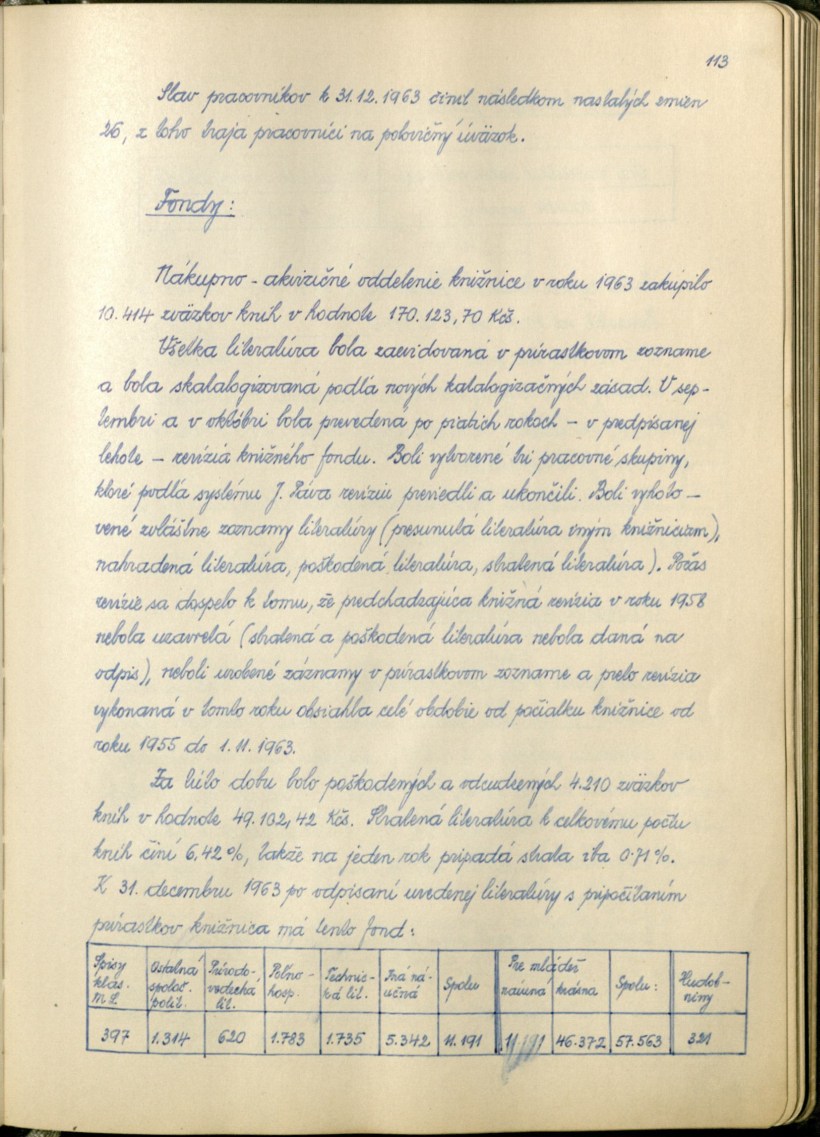 113
Stav pracovníkov k 31.12.1963 činil následkom nastalých zmien
26, z toho traja pracovníci na polovičný úväzok.
Fondy:
Nákupno - akvizičné oddelenie knižnice v roku 1963 zakúpilo
10.414 zväzkov kníh v hodnote 170.123,70 Kčs.
Všetka literatúra bola zaevidovaná v prírastkovom zozname
a bola skatalogizovaná podľa nových katalogizačných zásad. V sep-
tembri a v októbri bola prevedená po piatich rokoch - v predpísanej
lehote - revízia knižného fondu. Boli vytvorené tri pracovné skupiny,
ktoré podľa systému J. Páva revíziu previedli a ukončili. Boli vyhoto-
vené zvláštne záznamy literatúry (presunutá literatúra iným knižniciam),
nahradená literatúra, poškodená literatúra, stratená literatúra). Počas
revízie sa dospelo k tomu, že predchadzajúca knižná revízia v roku 1958
nebola uzavretá (stratená a poškodená literatúra nebola daná na
odpis), neboli urobené záznamy v prírastkovom zozname a preto revízia
vykonaná v tomto roku obsiahla celé obdobie od počiatku knižnice od
roku 1955 do 1.11.1963.
Za túto dobu bolo poškodených a odcudzených 4.210 zväzkov
kníh v hodnote 49.102,42 Kčs. Stratená literatúra k celkovému počtu
kníh činí 6,42 %, takže na jeden rok pripadá strata iba 0.71 %.
K 31. decembru 1963 po odpísaní uvedenej literatúry s pripočítaním
prírastkov knižnica má tento fond:
Spisy klas. M.L. Ostatná spoloč. polit. Prírodo- vedecká lit. Poľno- hosp. Technic- ká lit. Iná ná- učná Spolu Pre mládež náučná krásna Spolu: Hudob- niny
397 1.314 620 1.783 1.735 5.342 11.191 11.191 46.372 57.563 321